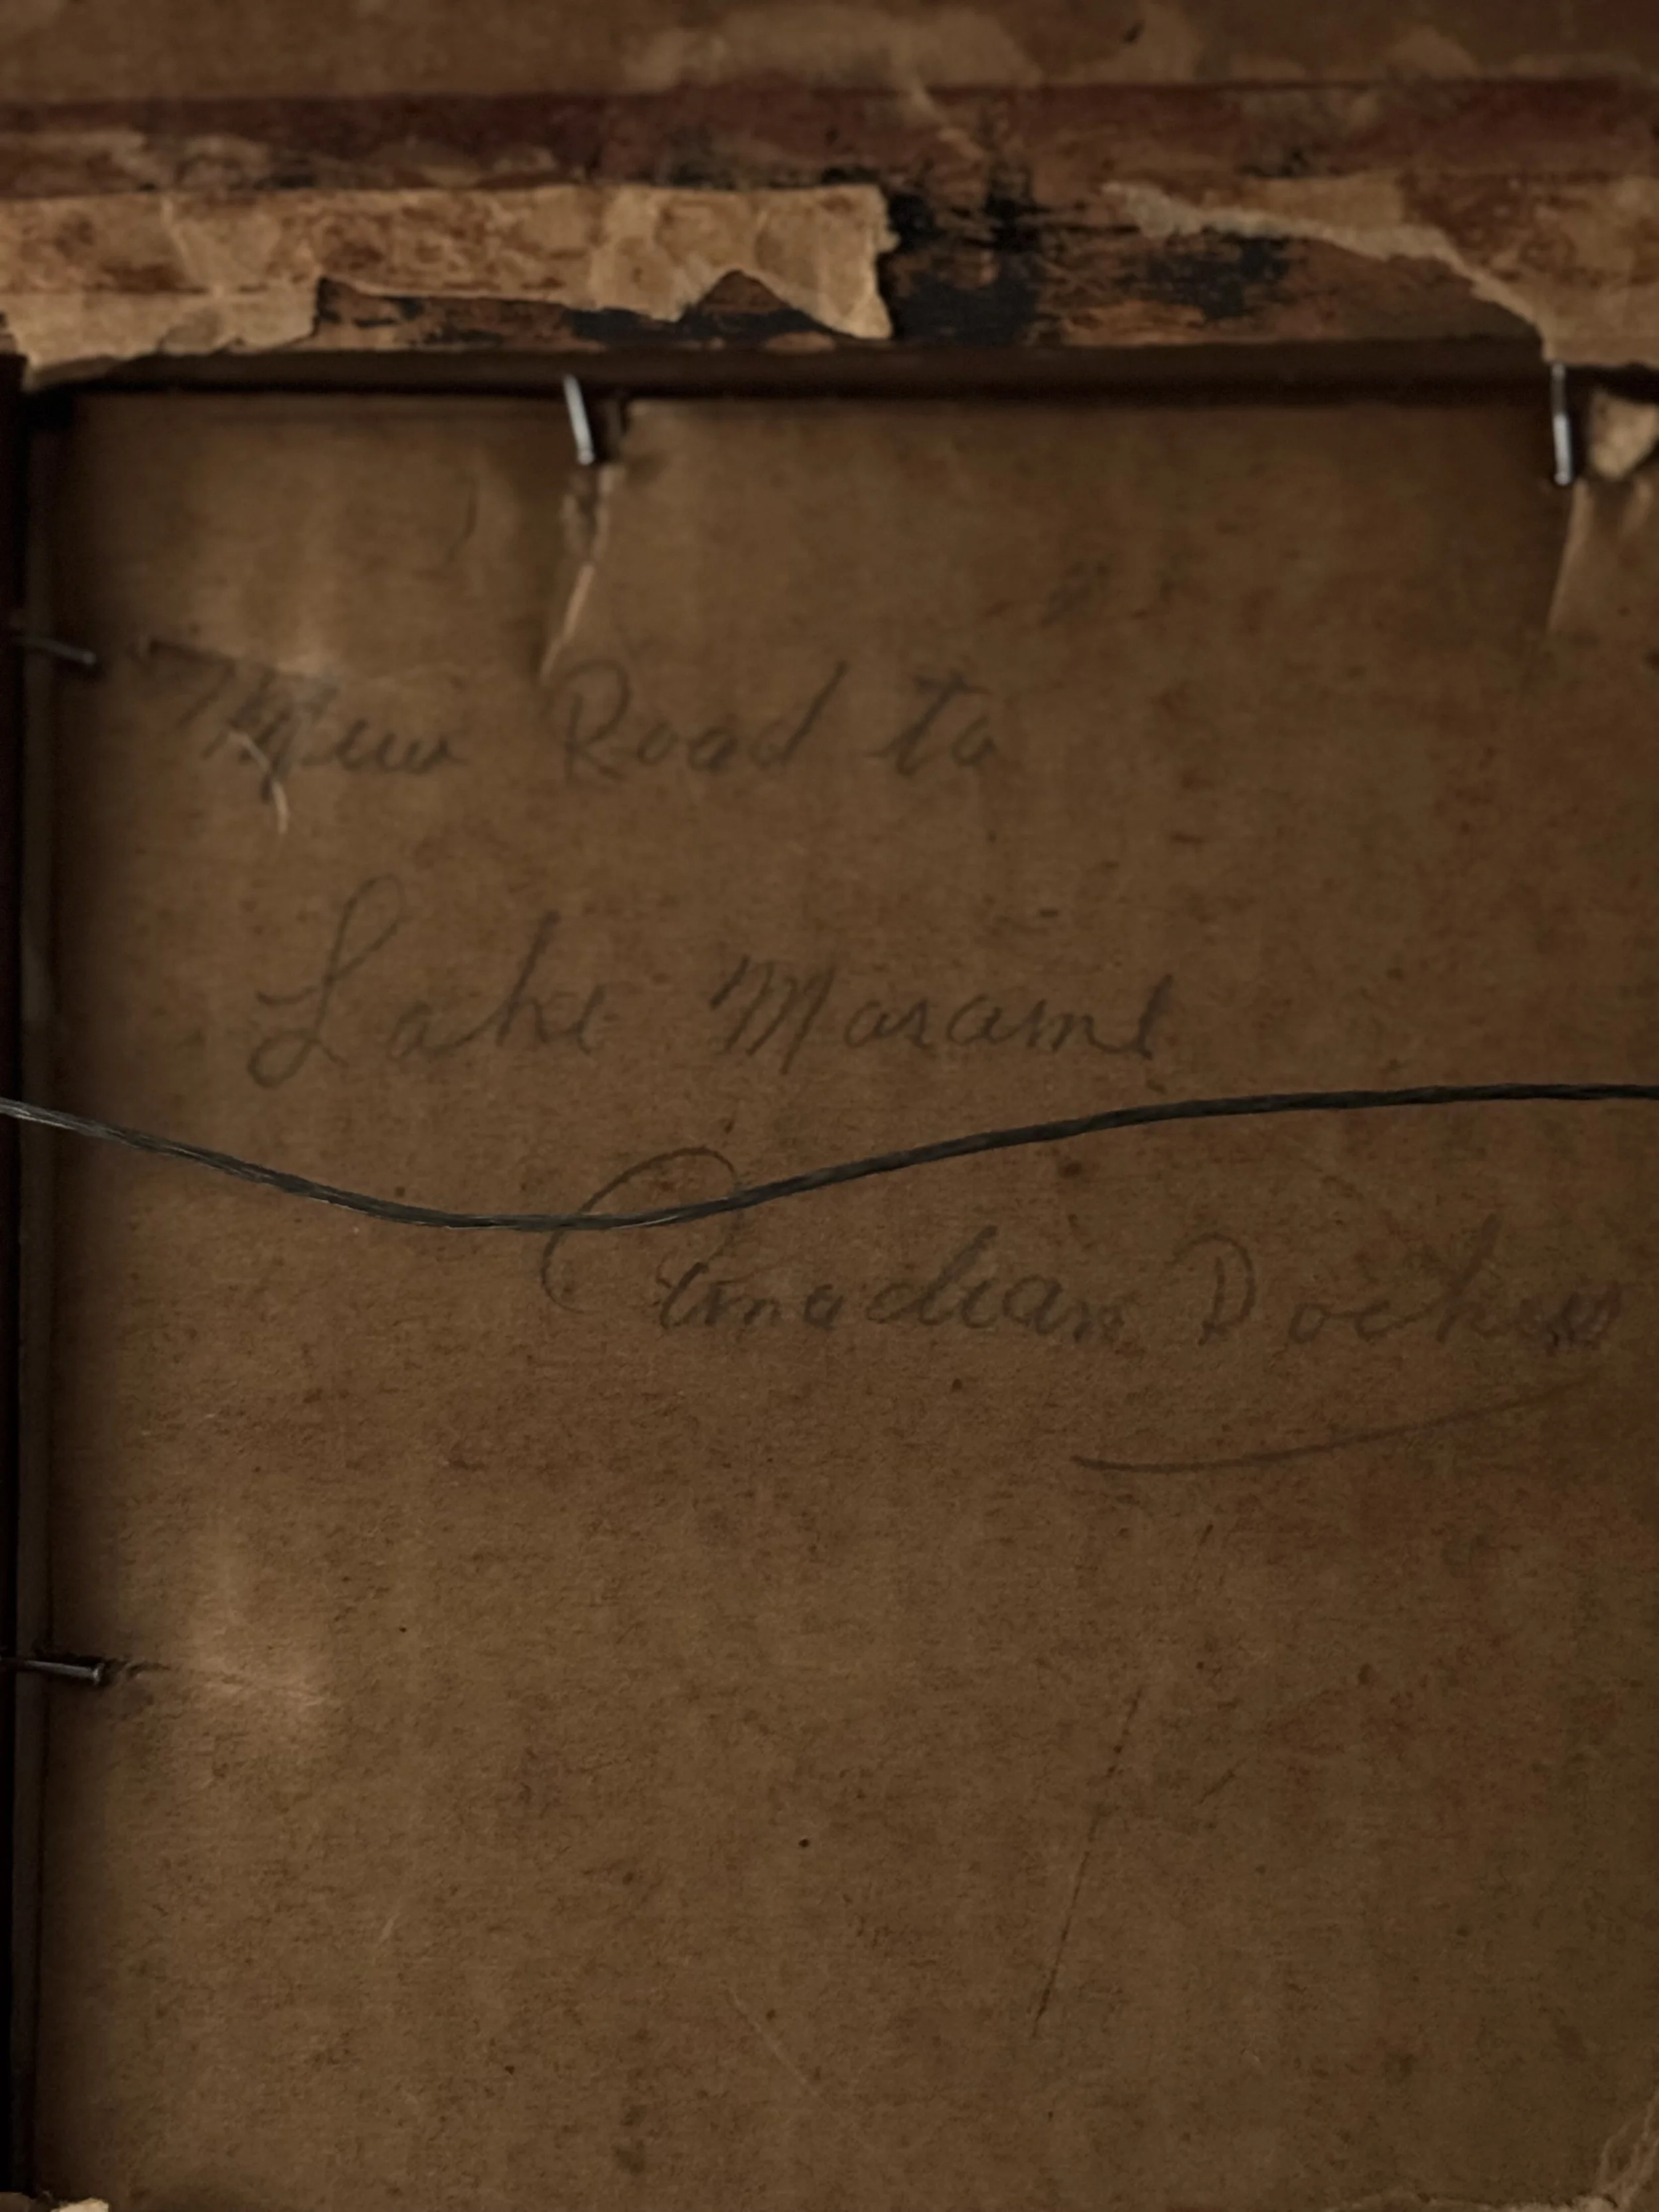 New Road to
Lake Maraine
Canadian Rockies